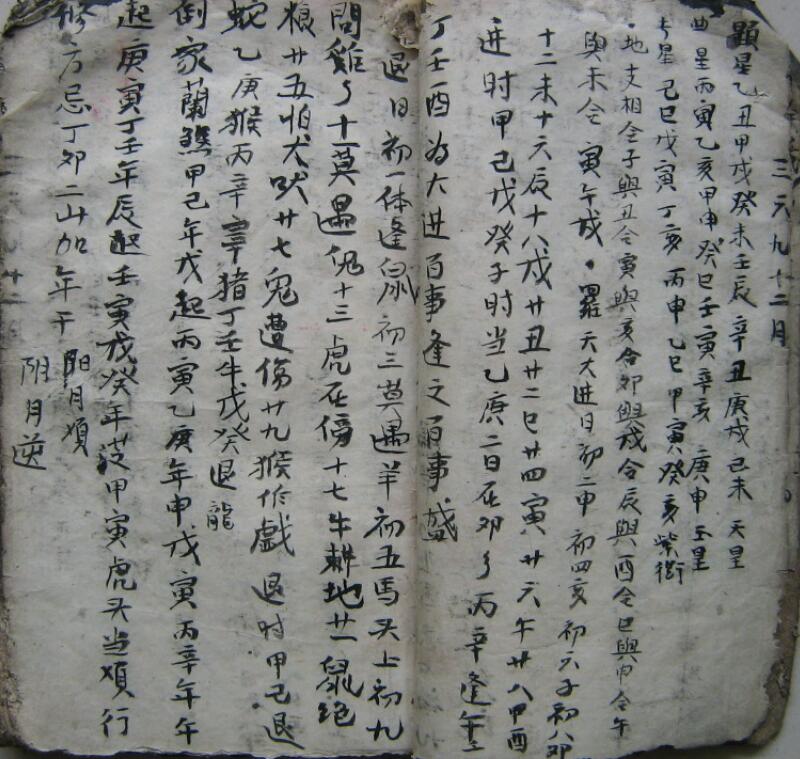 三六九十二月
顯星乙丑甲戌癸未壬辰辛丑庚戌己未天皇
曲星丙寅乙亥甲申癸巳壬寅辛亥庚申玉皇
星己巳戊寅丁亥丙申乙巳甲寅癸亥紫微
地支相合子與丑合寅與亥合卯與戌合辰與酉合巳與申合午
與未合寅午戌·羅天大进日初二申初四亥初六子初八卯
十二未十六辰十八戌廿丑廿二巳廿四寅廿六午廿八甲酉
进时甲己戊癸子时当乙庚二日在卯丙辛逢午
丁壬酉为大进百事逢之百事盛
退日初一休逢鼠初三莫遇羊初五馬头上初九
問雞十一莫遇兔十三虎在傍十七牛耕地廿一鼠绝
粮廿五怕犬吠廿七兔遭傷廿九猴作戲退时甲己退
蛇乙庚猴丙辛豬丁壬牛戊癸退龍
倒家蘭煞甲己年戌起丙寅乙庚年申戊寅丙辛年午
起庚寅丁壬年辰起壬寅戊癸年甲寅虎头当順行
修方忌丁卯二山加年干
陽月順
阴月逆